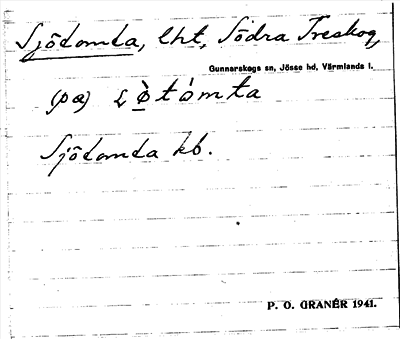 Sjötomta, lht, Södra Treskog,
Gunnarskogs sn, Jösse hd, Värmlands l.
(på)
Sjötomta kb.
P. O. GRANÉR 1941.